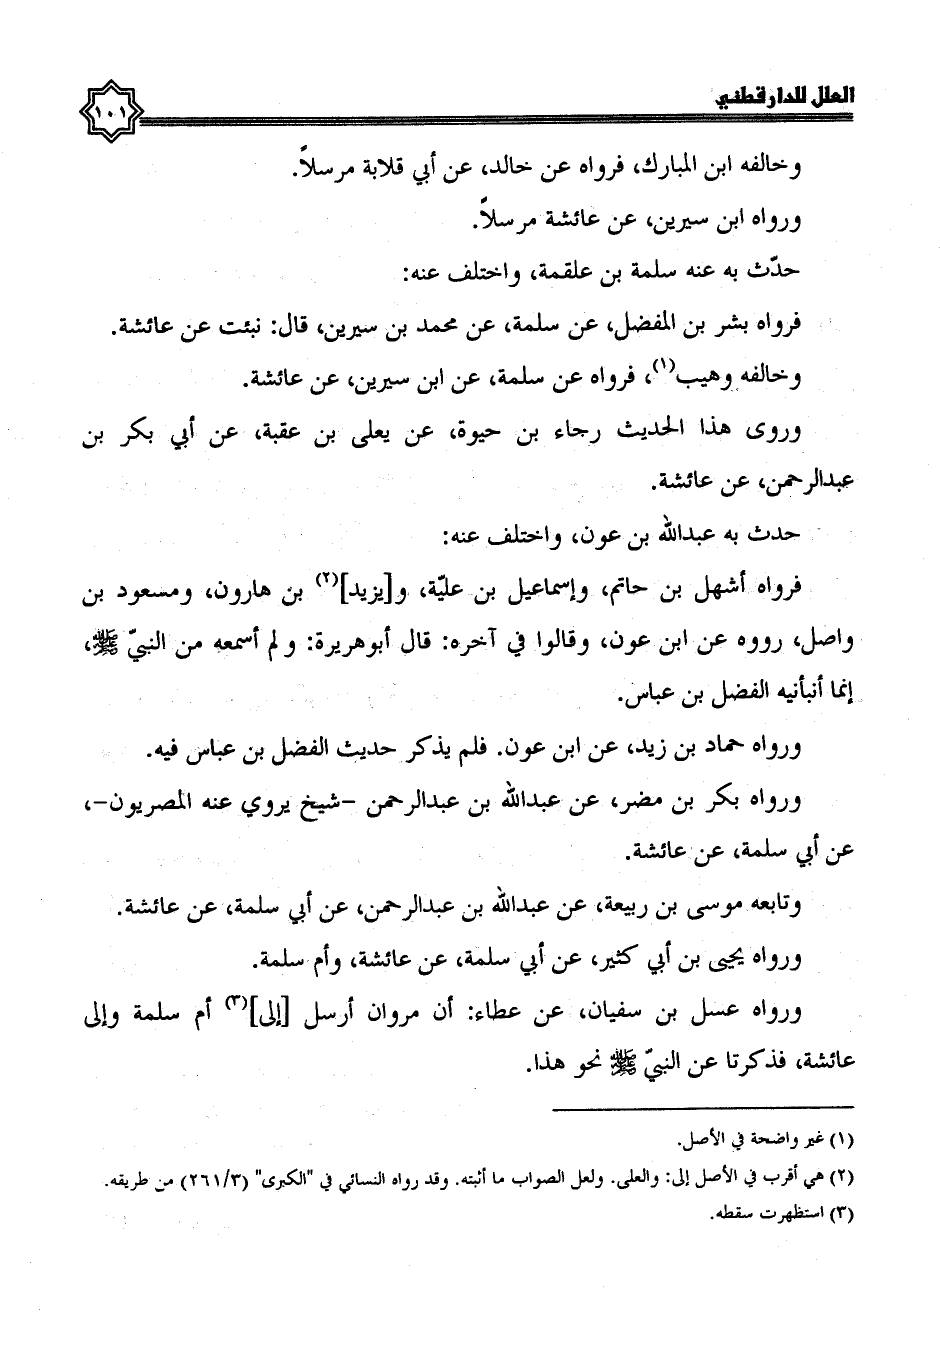 العلل للدارقطني
١٠١
وخالفه ابن المبارك، فرواه عن خالد، عن أبي قلابة مرسلاً.
ورواه ابن سيرين، عن عائشة مرسلاً.
حدّث به عنه سلمة بن علقمة، واختلف عنه:
فرواه بشر بن المفضل، عن سلمة، عن محمد بن سيرين، قال: نبئت عن عائشة.
وخالفه وهيب(١)، فرواه عن سلمة، عن ابن سيرين، عن عائشة.
وروى هذا الحديث رجاء بن حيوة، عن يعلى بن عقبة، عن أبي بكر بن
عبدالرحمن، عن عائشة.
حدث به عبدالله بن عون، واختلف عنه:
فرواه أشهل بن حاتم، وإسماعيل بن عليّة، و[يزيد](٢) بن هارون، ومسعود بن
واصل، رووه عن ابن عون، وقالوا في آخره: قال أبوهريرة: ولم أسمعه من النبيّ ﷺ،
إنما أنبأنيه الفضل بن عباس.
ورواه حماد بن زيد، عن ابن عون. فلم يذكر حديث الفضل بن عباس فيه.
ورواه بكر بن مضر، عن عبدالله بن عبدالرحمن -شيخ يروي عنه المصريون-،
عن أبي سلمة، عن عائشة.
وتابعه موسى بن ربيعة، عن عبدالله بن عبدالرحمن، عن أبي سلمة، عن عائشة.
ورواه يحيى بن أبي كثير، عن أبي سلمة، عن عائشة، وأم سلمة.
ورواه عسل بن سفيان، عن عطاء: أن مروان أرسل [إلى](٣) أم سلمة وإلى
عائشة، فذكرتا عن النبيّ ﷺ نحو هذا.
(١) غير واضحة في الأصل.
(٢) هي أقرب في الأصل إلى: والعلى. ولعل الصواب ما أثبته. وقد رواه النسائي في "الكبرى" (٢٦١/٣) من طريقه.
(٣) استظهرت سقطه.